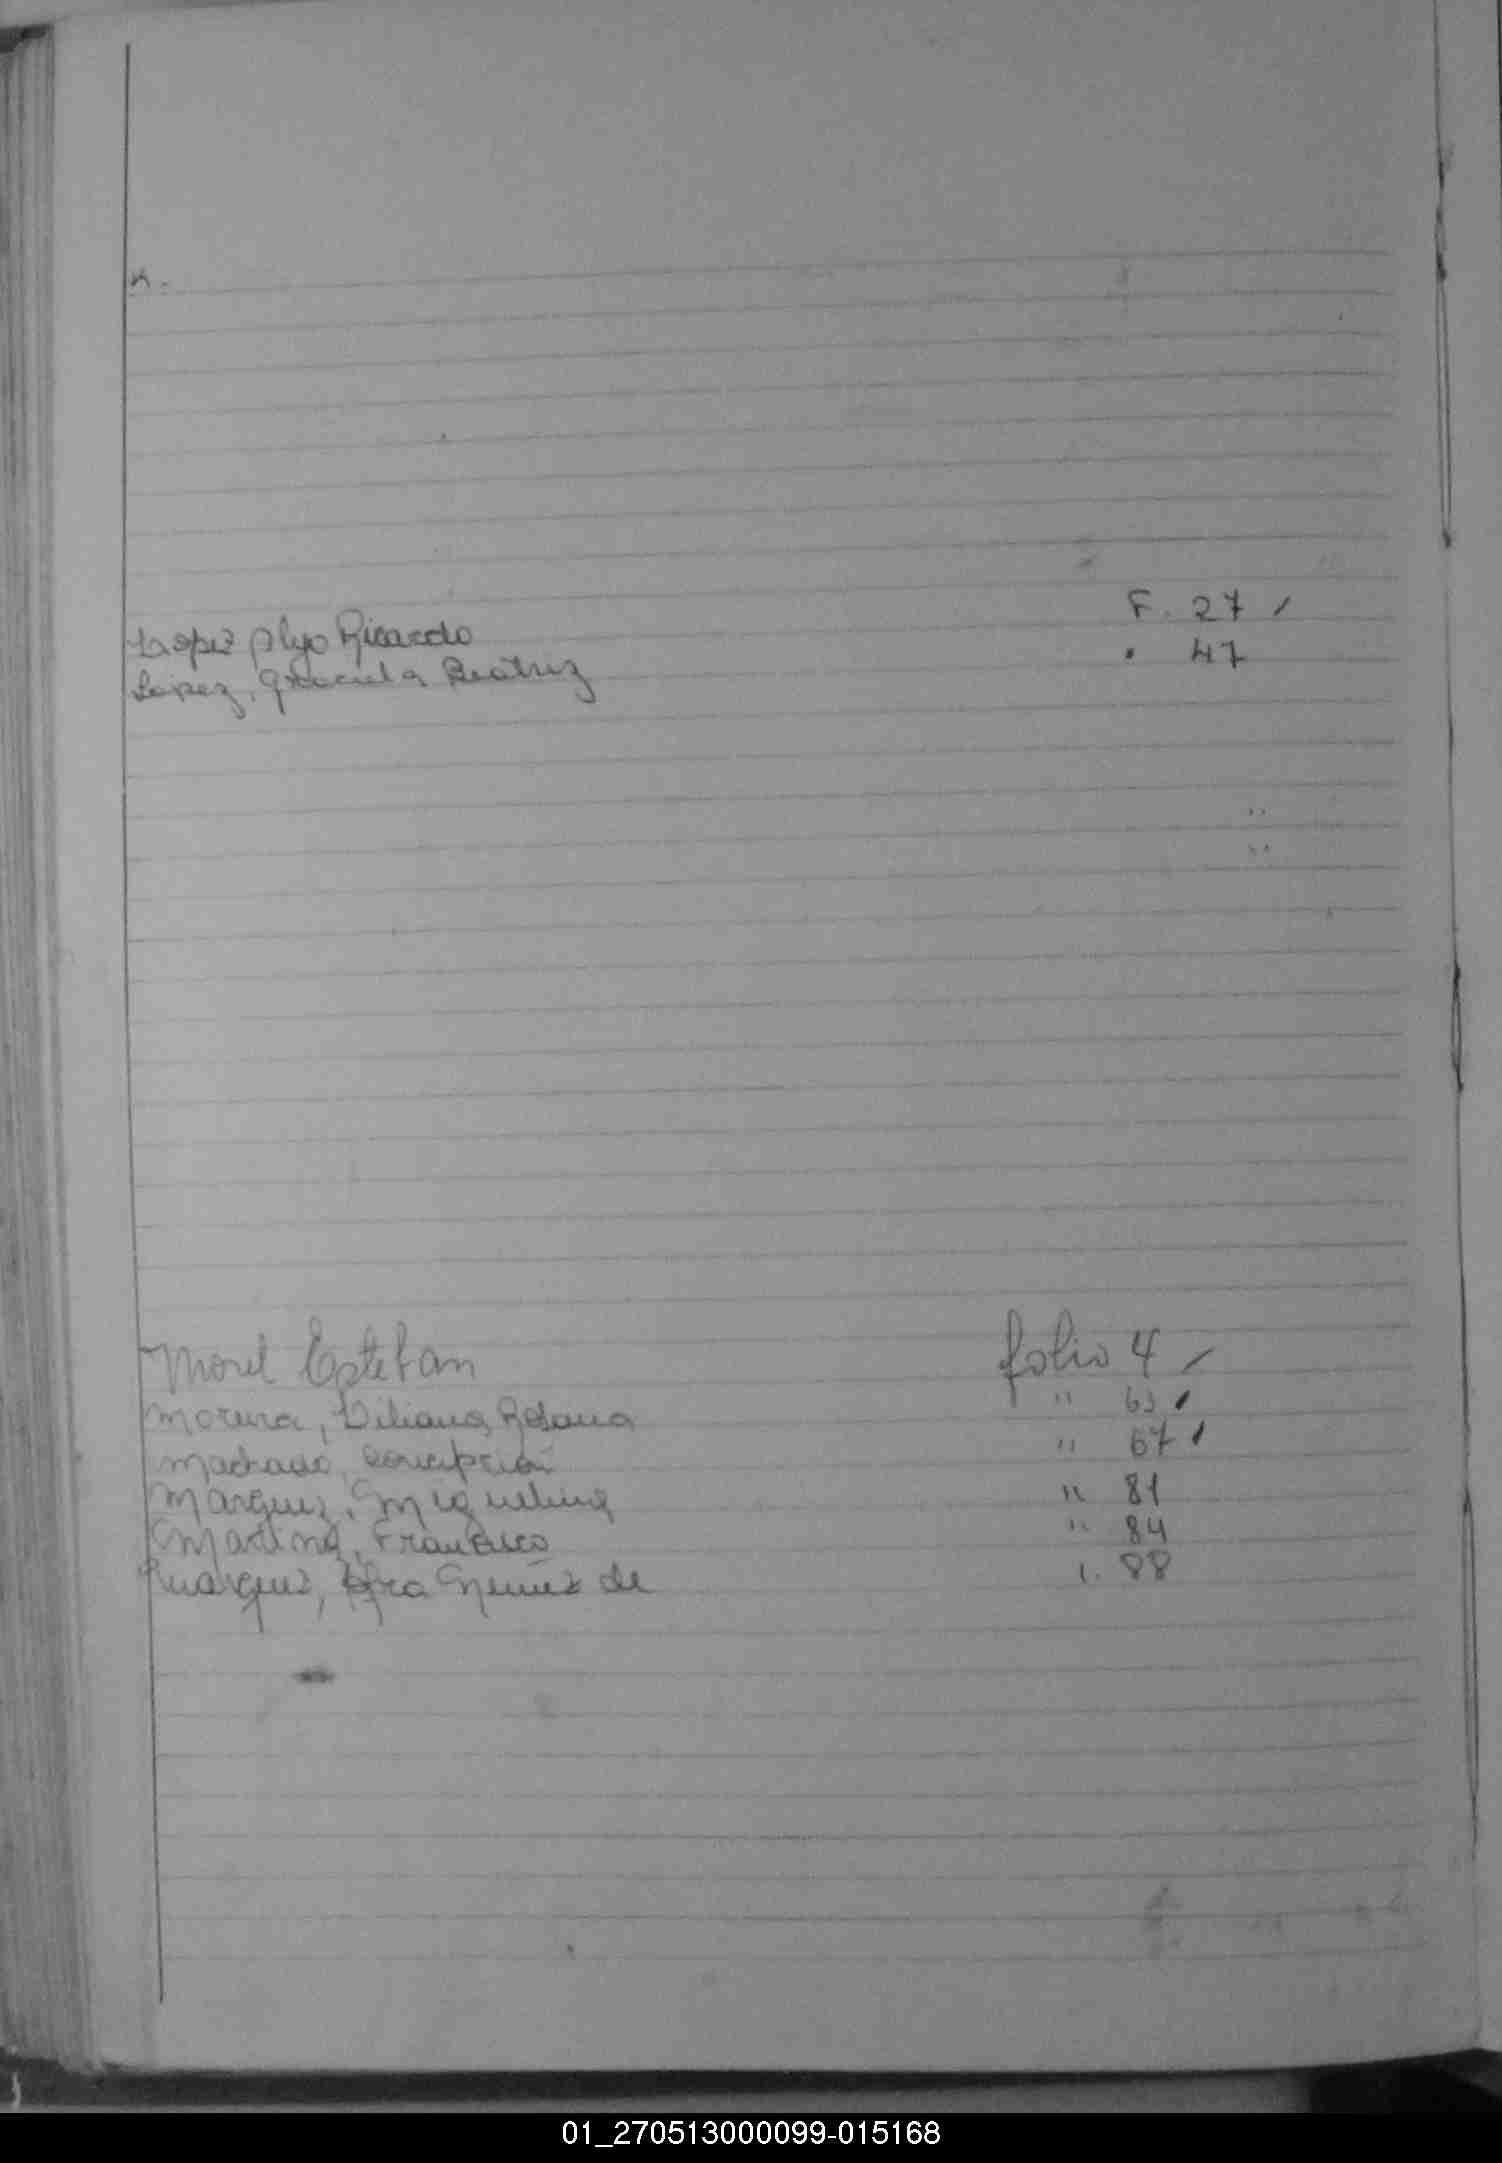 K.
Lopez Olga Ricardo F. 27 /
Lopez, Graciela Beatriz " 47
Morel Esteban folio 4 /
Moreira, Liliana Rosana " 63 /
Machado, Concepción " 67 /
Marquez, Miguelina " 81
Martins, Francisco " 84
Marquez, Nuñez de " 88
01_270513000099-015168